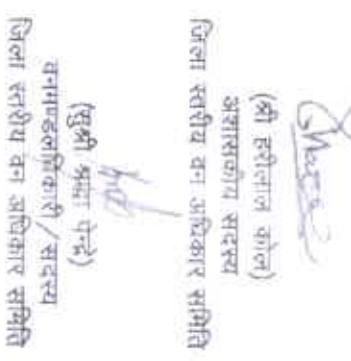 (श्री हरीलाल कोल)
अशासकीय सदस्य
जिला स्तरीय वन अधिकार समिति
(सुश्री श्रद्धा पेन्द्रे)
वनमण्डलाधिकारी/सदस्य
जिला स्तरीय वन अधिकार समिति